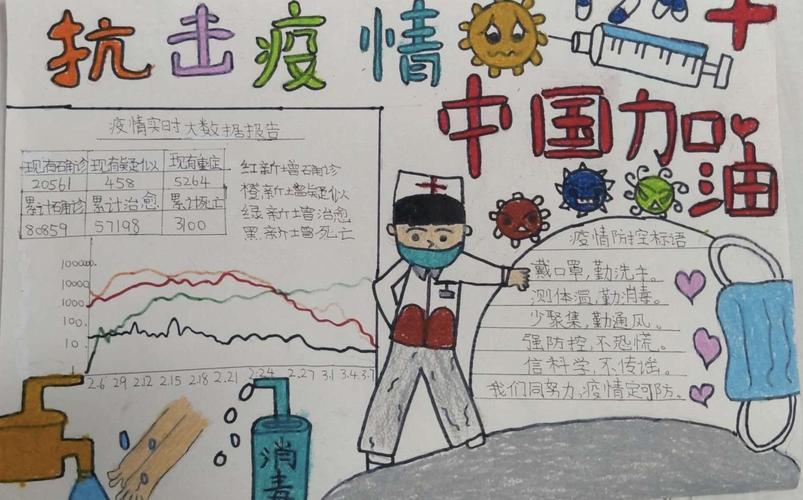 抗击疫情
中国加油
疫情实时大数据报告
现有确诊 现有疑似 现有重症
20561 458 5264
累计确诊 累计治愈 累计死亡
80859 57198 3100
红新增确诊
橙新增疑似
绿新增治愈
黑新增死亡
100000
10000
1000
100
10
1
2.6 29 2.12 2.15 2.18 2.21 2.24 2.27 3.1 3.4 3.7
疫情防控标语
戴口罩，勤洗手。
测体温，勤消毒。
少聚集，勤通风。
强防控，不恐慌。
信科学，不传谣。
我们同努力，疫情定可防。
消毒